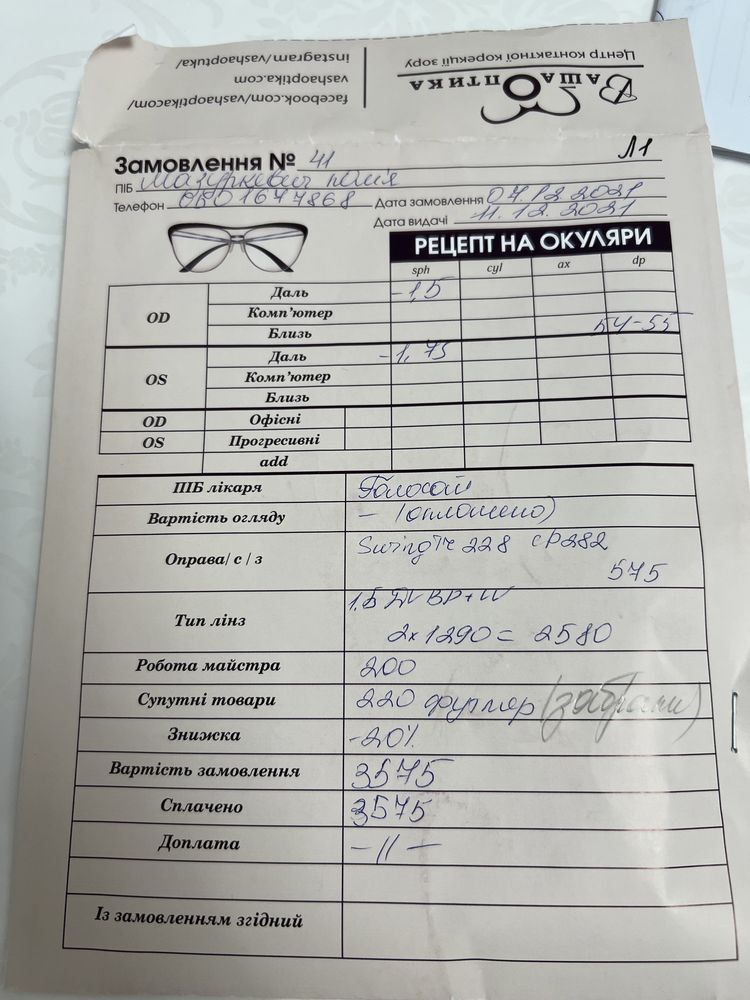 facebook.com/vashaoptikacom/
vashaoptika.com
instagram/vashaoptuka/
ВАШАОПТИКА
Центр контактної корекції зору
Замовлення № 41 Л1
ПІБ Мазуркевич
Телефон 0801677868 Дата замовлення 07.12.2021
Дата видачі 11.12.2021
РЕЦЕПТ НА ОКУЛЯРИ
sph cyl ax dp
OD Даль -1,5
Комп'ютер
Близь 54-55
OS Даль -1,75
Комп'ютер
Близь
OD Офісні
OS Прогресивні
add
ПІБ лікаря
Вартість огляду – (оплочено)
Оправа/ с / з 228 282
575
Тип лінз 1.5
2x1290= 2580
Робота майстра 200
Супутні товари 220 футляр (забрали)
Знижка -20%
Вартість замовлення 3575
Сплачено 3575
Доплата –//–
Із замовленням згідний